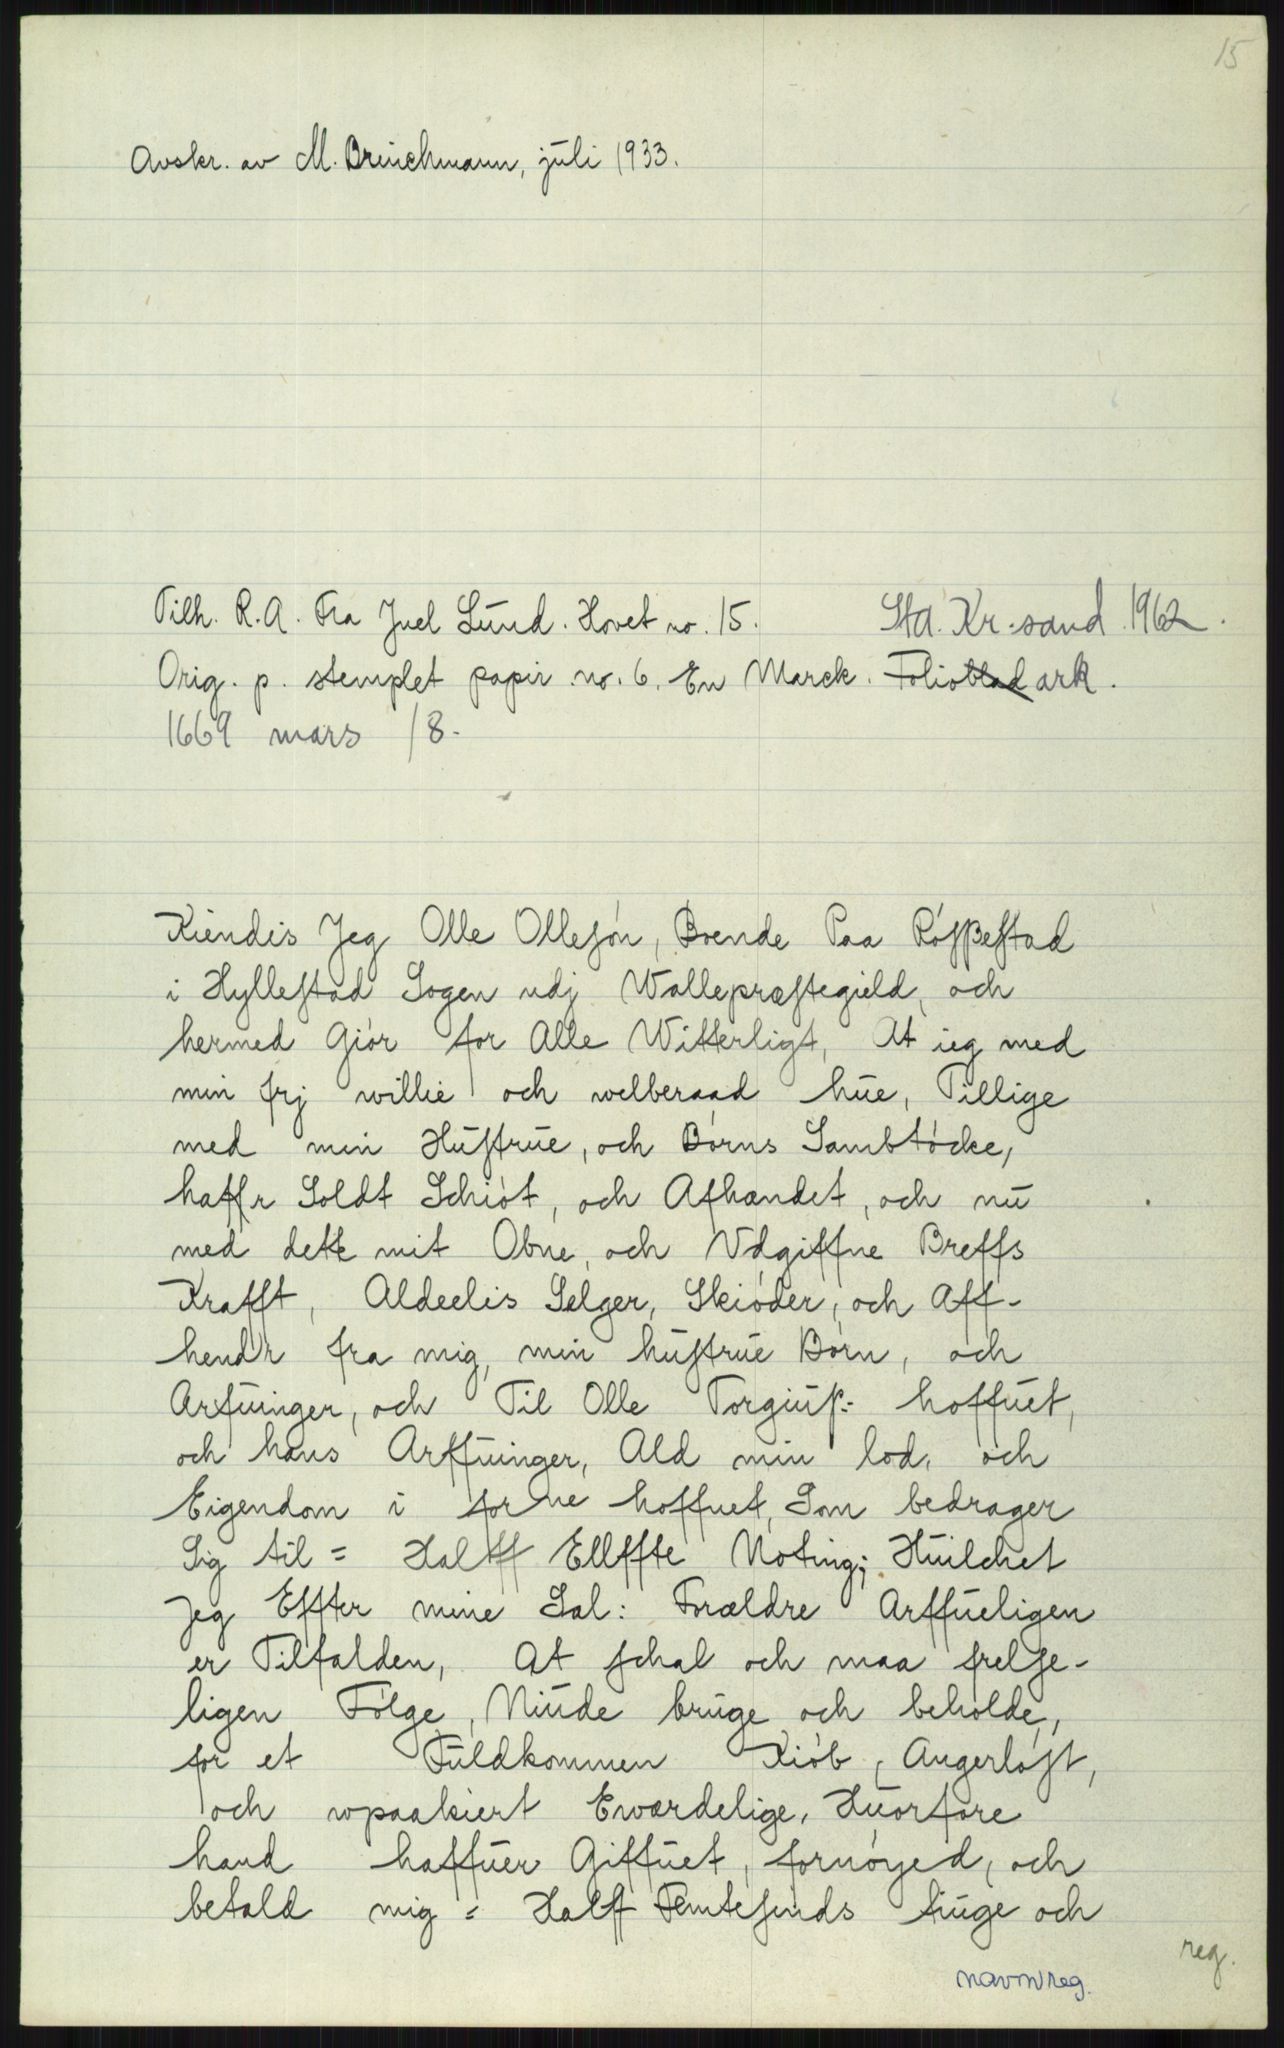 15
Avskr. av M. Brinchmann, juli 1933.
Tilh. R.A. Fra Juel Lund. Hovet no. 15. StA. Kr.sand 1962.
Orig. p. stemplet papir no. 6. En Marck. Folioblad ark.
1669 mars 18.
Kiendis Jeg Olle Ollesón, Boende Paa Rósßestad
i Hyllestad Sogen udj Wallepræstegield, och
hermed Giór for Alle Witterligt, At ieg med
min frj willie och welberaad hue, Tillige
med min Hustrue, och Bórns Sambtócke,
haffr Soldt Schiót, och Afhændet, och nu
med dette mit Obne, och Vdgiffne Breffs
Krafft, Aldeelis Selger, Skióder, och Aff-
hendr fra mig, min hustrue Bórn, och
Arfuinger, och Til Olle Torgiuß: hoffuet,
och hans Arffuinger, Ald min lod, och
Eigendom i forne hoffuet, Som bedrager
Sig til = Halff Ellffte Noting; Huilchet
Jeg Effter mine Sal: Forældre Arffueligen
er Tilfalden, At schal och maa frelse-
ligen Fólge, Niude bruge och beholde,
for et Fuldkommen Kiób, Angerlóst,
och wpaakiert Ewærdelige, Huorfore
hand haffuer Giffuet, fornóyed, och
betald mig = Halff Femtesinds tiuge och
reg.
navnreg.